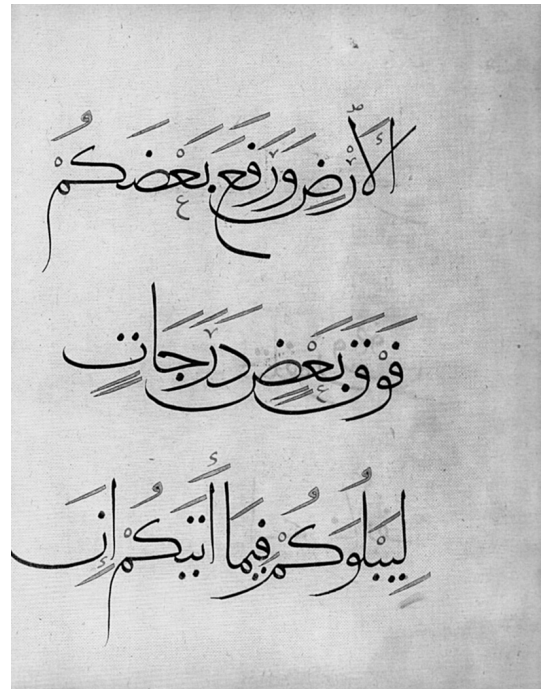 الْأَرْضِ وَرَفَعَ بَعْضَكُمْ
فَوْقَ بَعْضٍ دَرَجَاتٍ
لِيَبْلُوَكُمْ فِيمَا أَتَيكُمْ إِنَّ